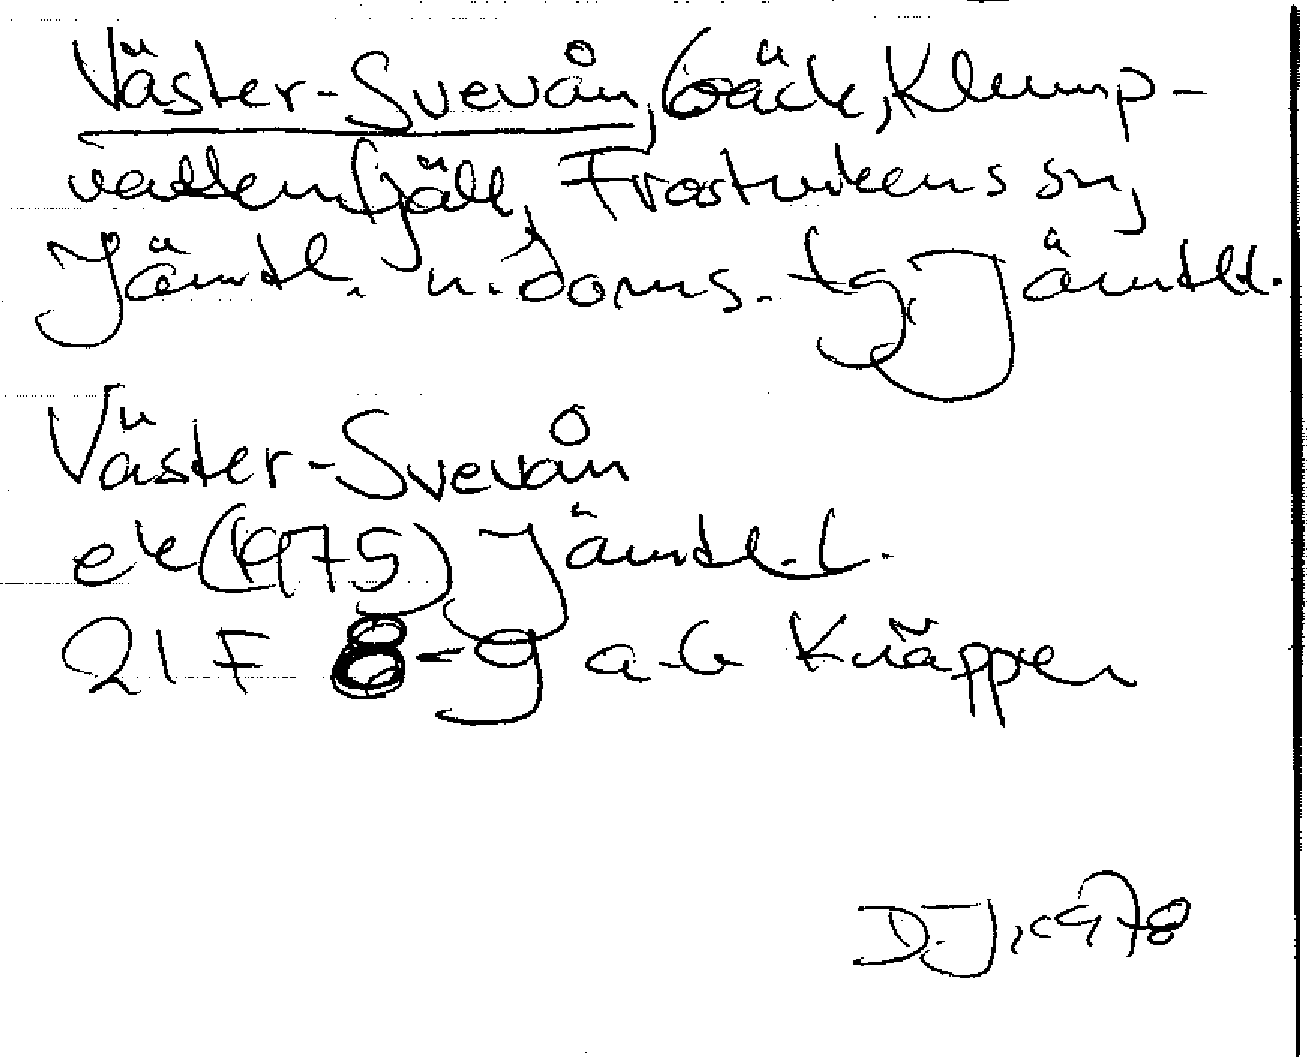 Väster-Svevån, bäck, Klump-
vattenfjäll, Frostvikens sn,
Jämtl. n. doms. tg. Jämtl l.
Väster-Svevån
ek (1975) Jämtl. l.
21F 8-9 a-b Knäppen
D.J. 1978